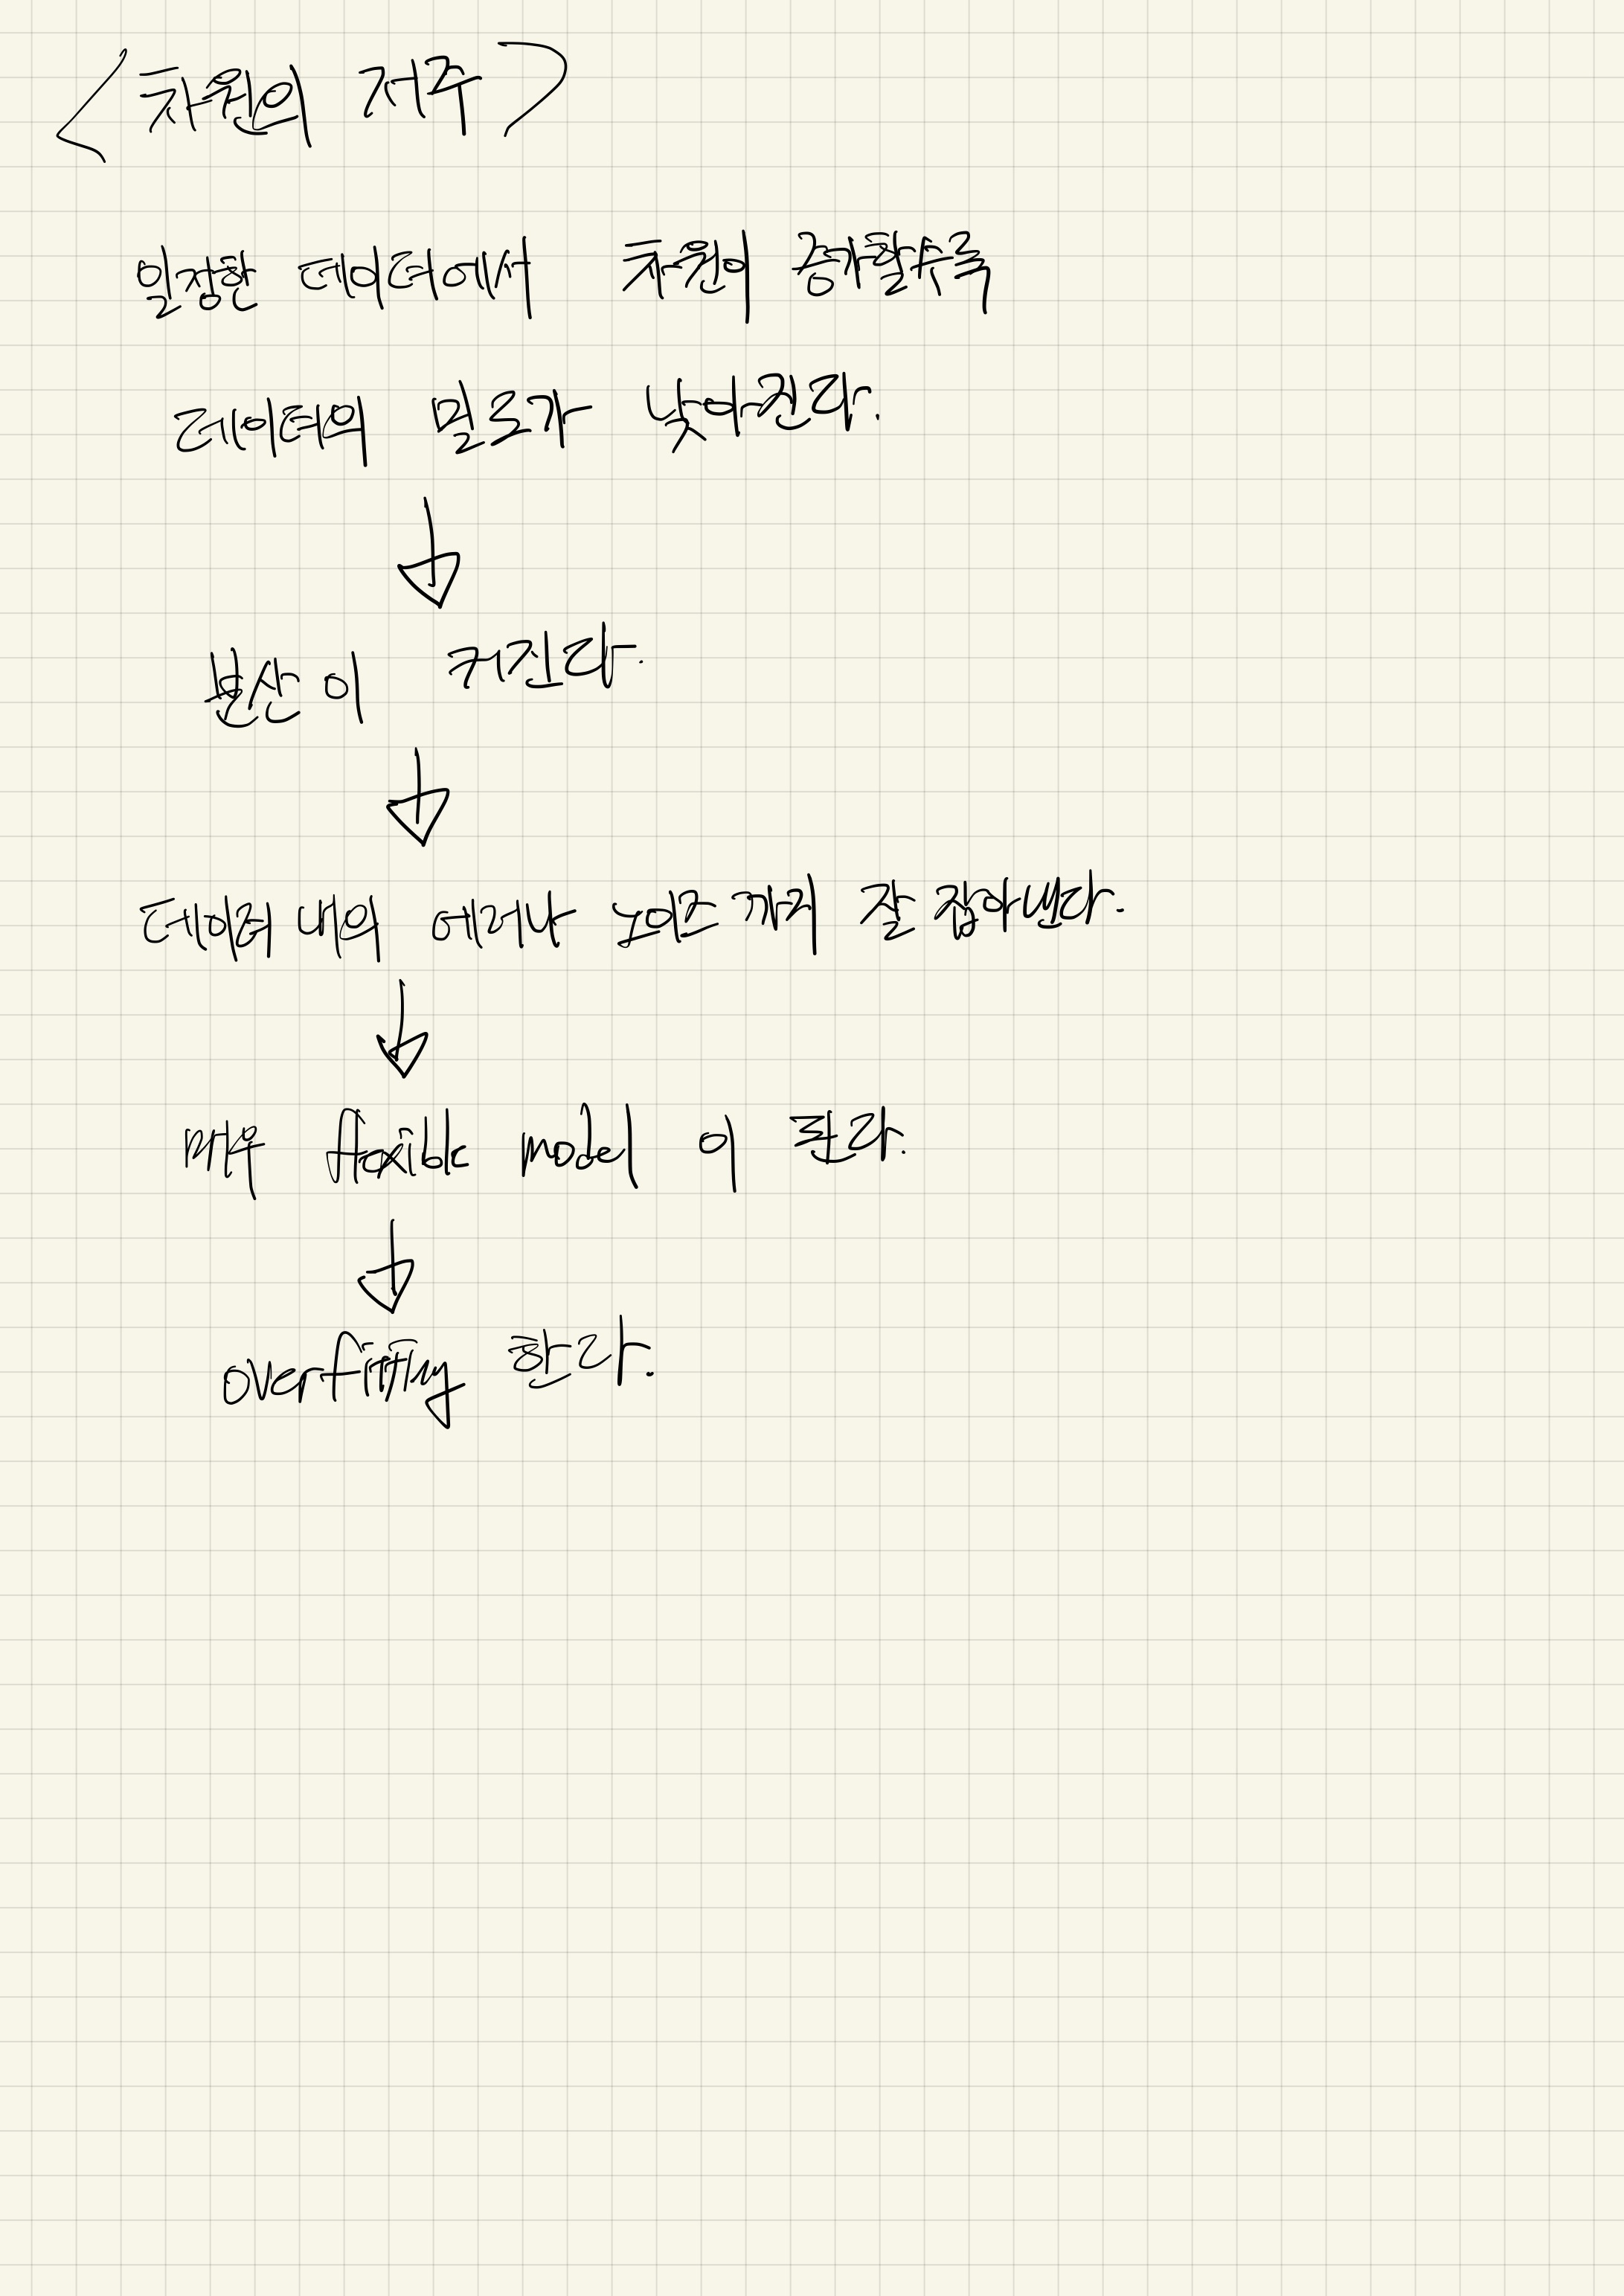 <차원의 저주>
일정한 데이터에서 차원이 증가할수록
데이터의 밀도가 낮아진다.
분산이 커진다.
데이터 내의 에러나 노이즈까지 잘 잡아낸다.
매우 flexible model 이 된다.
overfitting 한다.